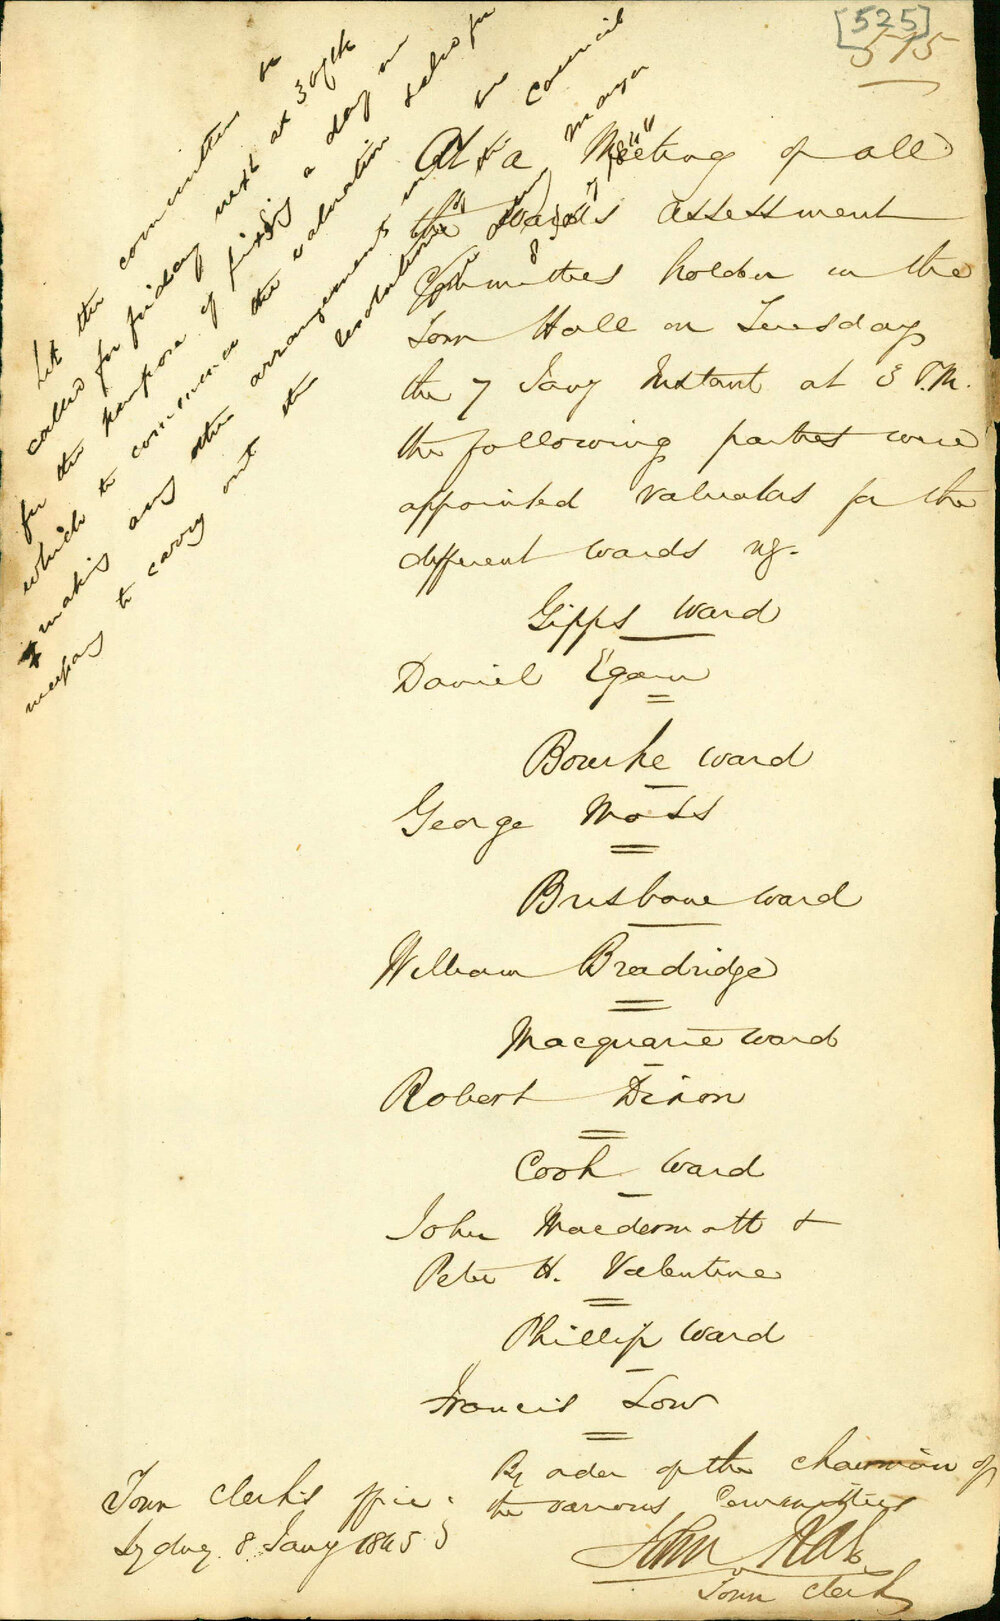 [525]
515
At a Meeting of all
the Wards Assessment
Committees holden in the
Town Hall on Tuesday
the 7 Jany Instant at 3 P.M.
the following parties were
appointed Valuators for the
different Wards vz.
Gipps Ward
Daniel Egan
Bourke Ward
George Moss
Brisbane Ward
William Bradridge
Macquarie Ward
Robert Dixon
Cook Ward
John Macdermott &
Peter H. Valentine
Phillip Ward
Francis Low
By order of the Chairman of
the various Committees
John Rae
Town Clerk
Town Clerk's Office
Sydney 8 Jany 1845
Let the committees be
called for friday next at 3 oclk
for the purpose of fixing a day on
which to commence the valuation & also for
making any other arrangements
necessary to carry out the resolutions of the Council
Mayor